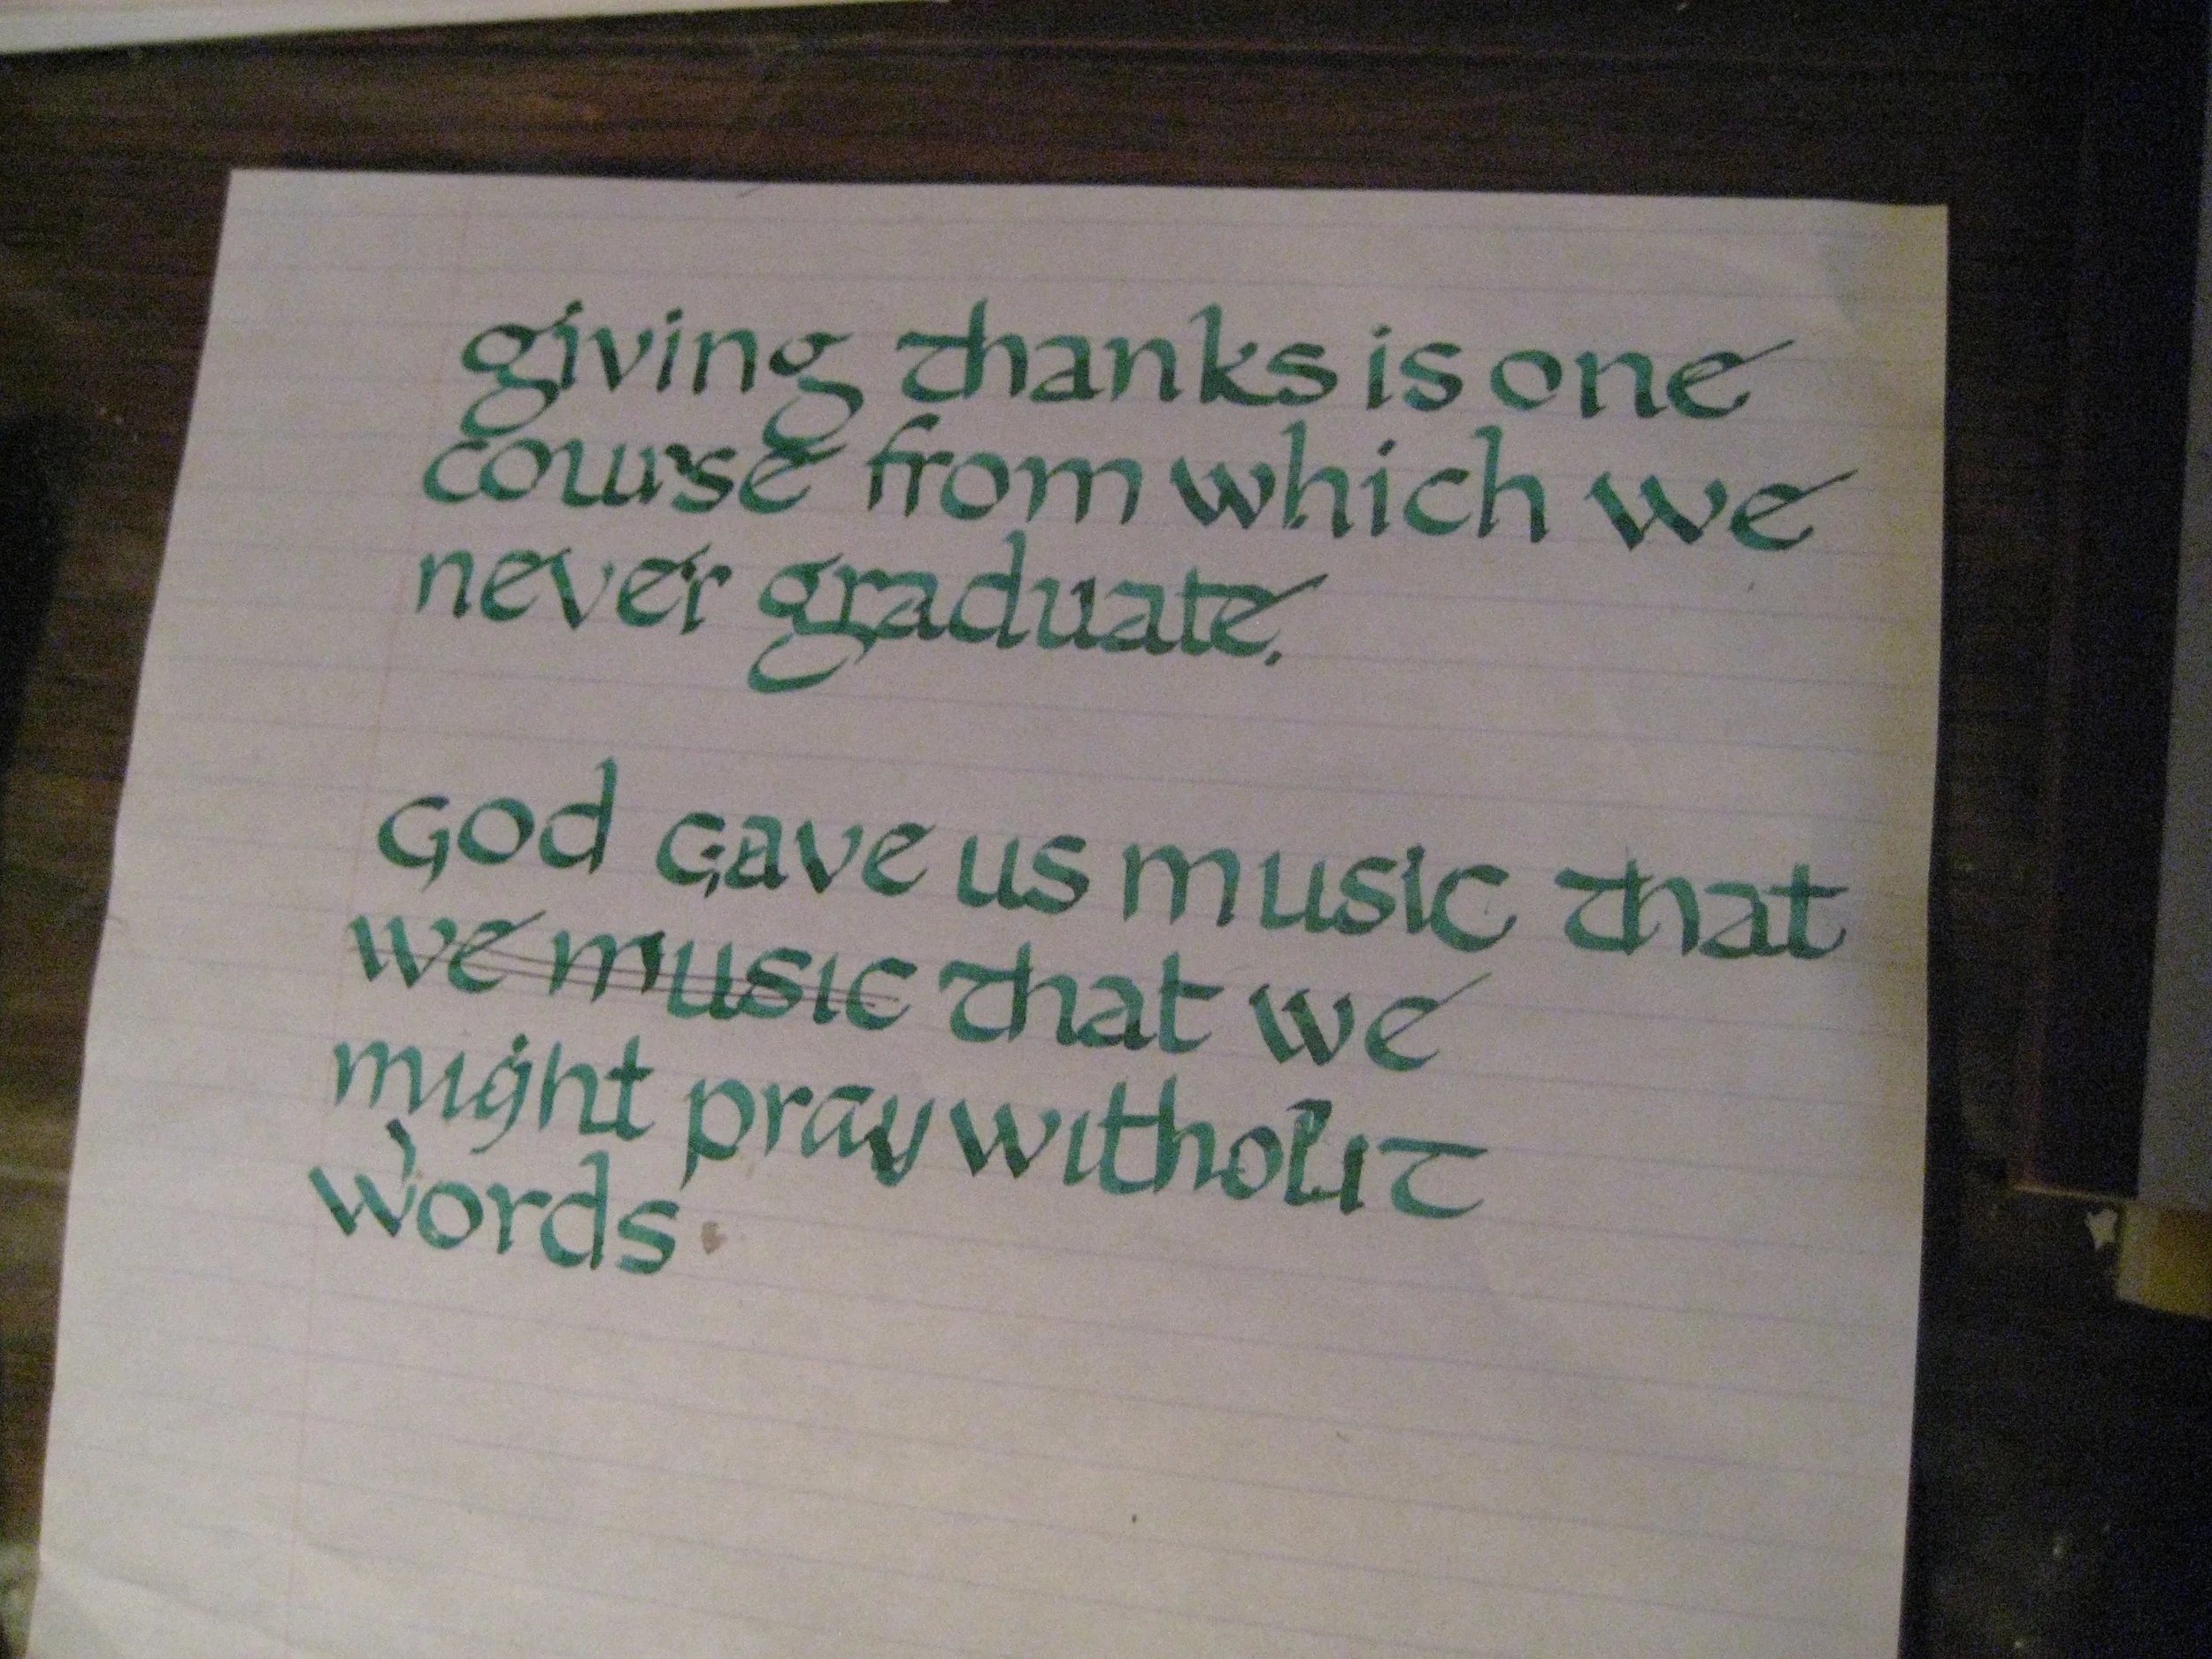 giving thanks is one
course from which we
never graduate.
God gave us music that
we music that we
might pray without
words